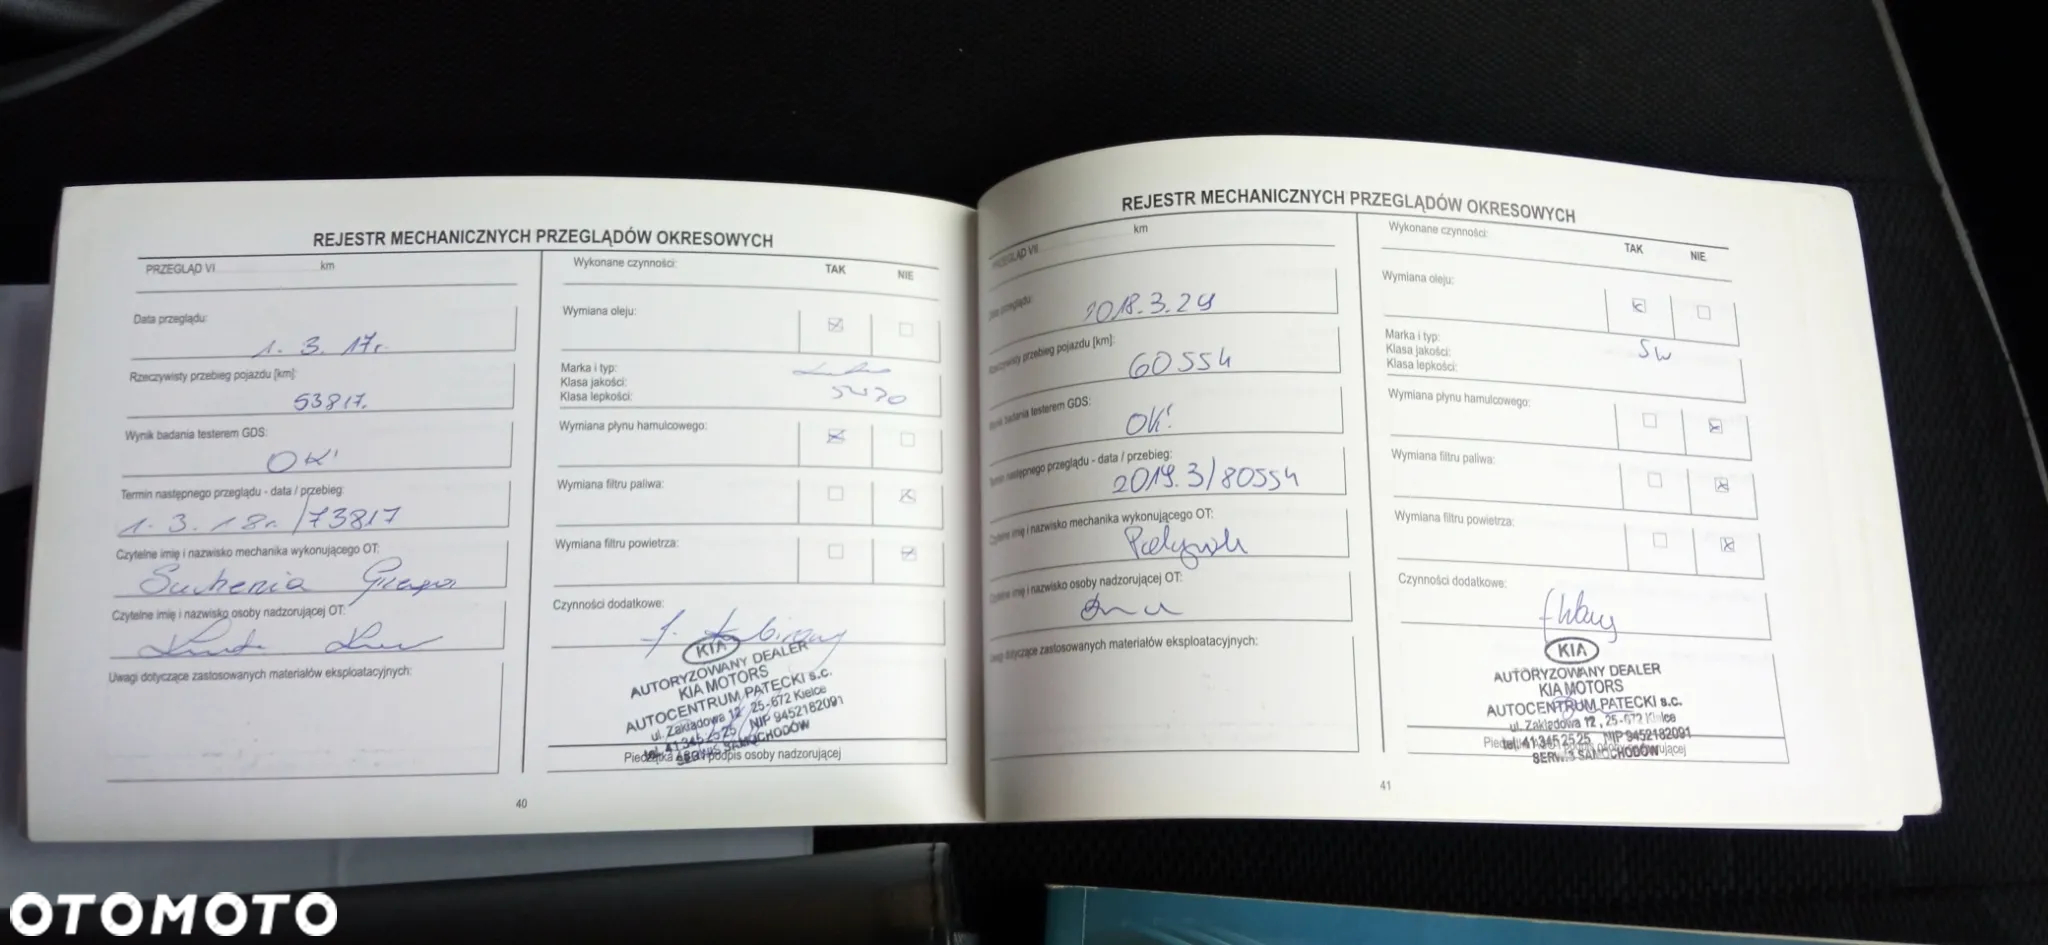 REJESTR MECHANICZNYCH PRZEGLĄDÓW OKRESOWYCH
PRZEGLĄD VI km
Data przeglądu:
1. 3. 17r.
Rzeczywisty przebieg pojazdu [km]:
53817.
Wynik badania testerem GDS:
OK!
Termin następnego przeglądu - data / przebieg:
1. 3. 18r. /73817
Czytelne imię i nazwisko mechanika wykonującego OT:
Czytelne imię i nazwisko osoby nadzorującej OT:
Uwagi dotyczące zastosowanych materiałów eksploatacyjnych:
Wykonane czynności: TAK NIE
Wymiana oleju:
Marka i typ:
Klasa jakości:
Klasa lepkości:
Wymiana płynu hamulcowego:
Wymiana filtru paliwa:
Wymiana filtru powietrza:
Czynności dodatkowe:
KIA
AUTORYZOWANY DEALER
KIA MOTORS
AUTOCENTRUM PATECKI s.c.
ul. Zakładowa 12, 25-672 Kielce
tel. 41 345 25 25 NIP 9452182091
SERWIS SAMOCHODÓW
Pieczątka i podpis osoby nadzorującej
40
REJESTR MECHANICZNYCH PRZEGLĄDÓW OKRESOWYCH
PRZEGLĄD VII km
Data przeglądu:
2018.3.29
Rzeczywisty przebieg pojazdu [km]:
60554
Wynik badania testerem GDS:
OK!
Termin następnego przeglądu - data / przebieg:
2019.3/80554
Czytelne imię i nazwisko mechanika wykonującego OT:
Czytelne imię i nazwisko osoby nadzorującej OT:
Uwagi dotyczące zastosowanych materiałów eksploatacyjnych:
Wykonane czynności: TAK NIE
Wymiana oleju:
Marka i typ:
Klasa jakości:
Klasa lepkości:
5W
Wymiana płynu hamulcowego:
Wymiana filtru paliwa:
Wymiana filtru powietrza:
Czynności dodatkowe:
KIA
AUTORYZOWANY DEALER
KIA MOTORS
AUTOCENTRUM PATECKI s.c.
ul. Zakładowa 12, 25-672 Kielce
tel. 41 345 25 25 NIP 9452182091
SERWIS SAMOCHODÓW
41
OTOMOTO